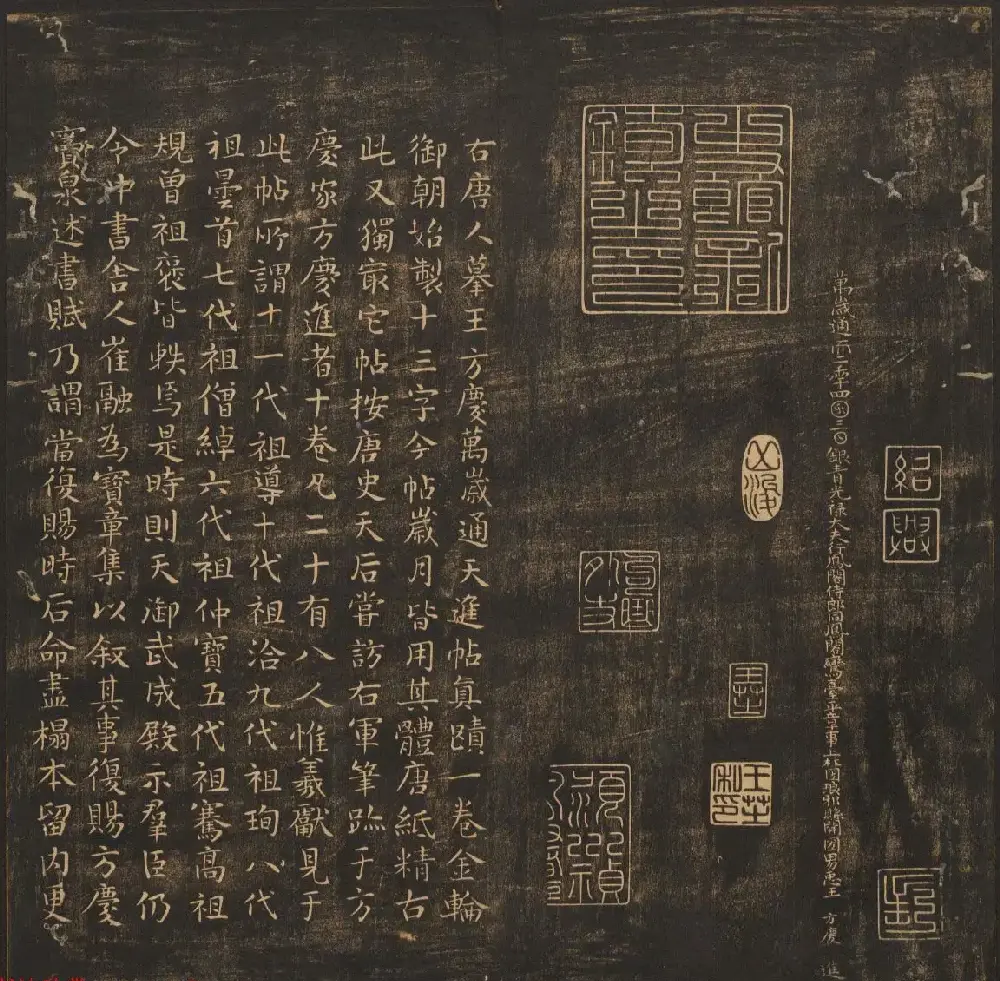 紹
興
萬歲通𠀑二𠡦四𠥱三𡆠銀青光祿大夫行鳳閣侍郎同鳳閣鸞臺平章事上柱圀琅耶縣開圀男𢘑王方慶進
右唐人摹王方慶萬歲通天進帖真蹟一卷金輪
御朝始製十三字今帖歲月皆用其體唐紙精古
此又獨冣它帖按唐史天后嘗訪右軍筆跡于方
慶家方慶進者十卷凡二十有八人惟羲獻見于
此帖所謂十一代祖導十代祖洽九代祖珣八代
祖曇首七代祖僧綽六代祖仲寶五代祖騫高祖
規曾祖褒皆軼焉是時則天御武成殿示羣臣仍
令中書舍人崔融為寶章集以叙其事復賜方慶
竇泉述書賦乃謂當復賜時后命盡榻本留内更